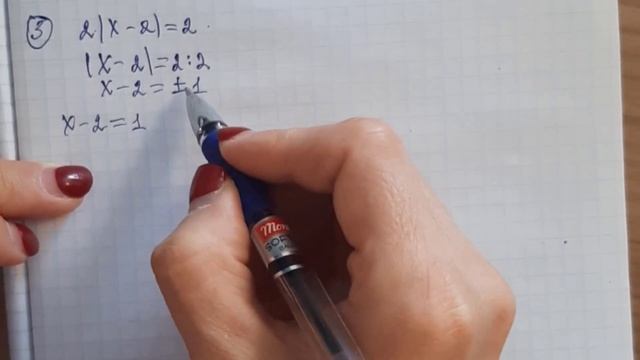 ③ 2|x-2|=2
|x-2|=2:2
x-2=±1
x-2=1
Mon
SOF